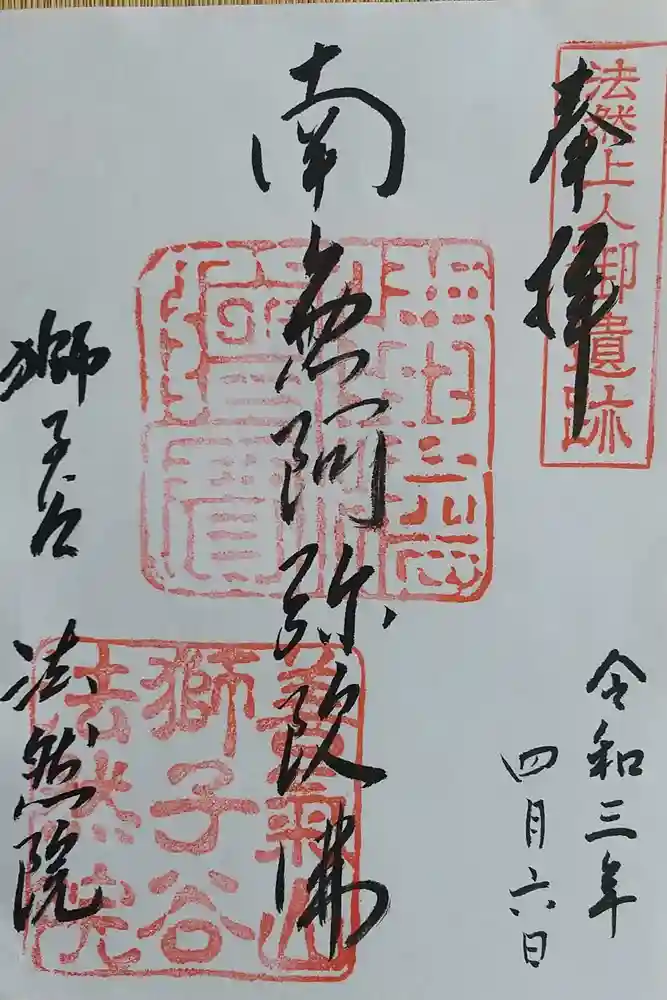 奉拝
法然上人御遺跡
令和三年
四月六日
南無阿弥陀佛
善氣山
獅子谷
法然院
獅子谷 法然院